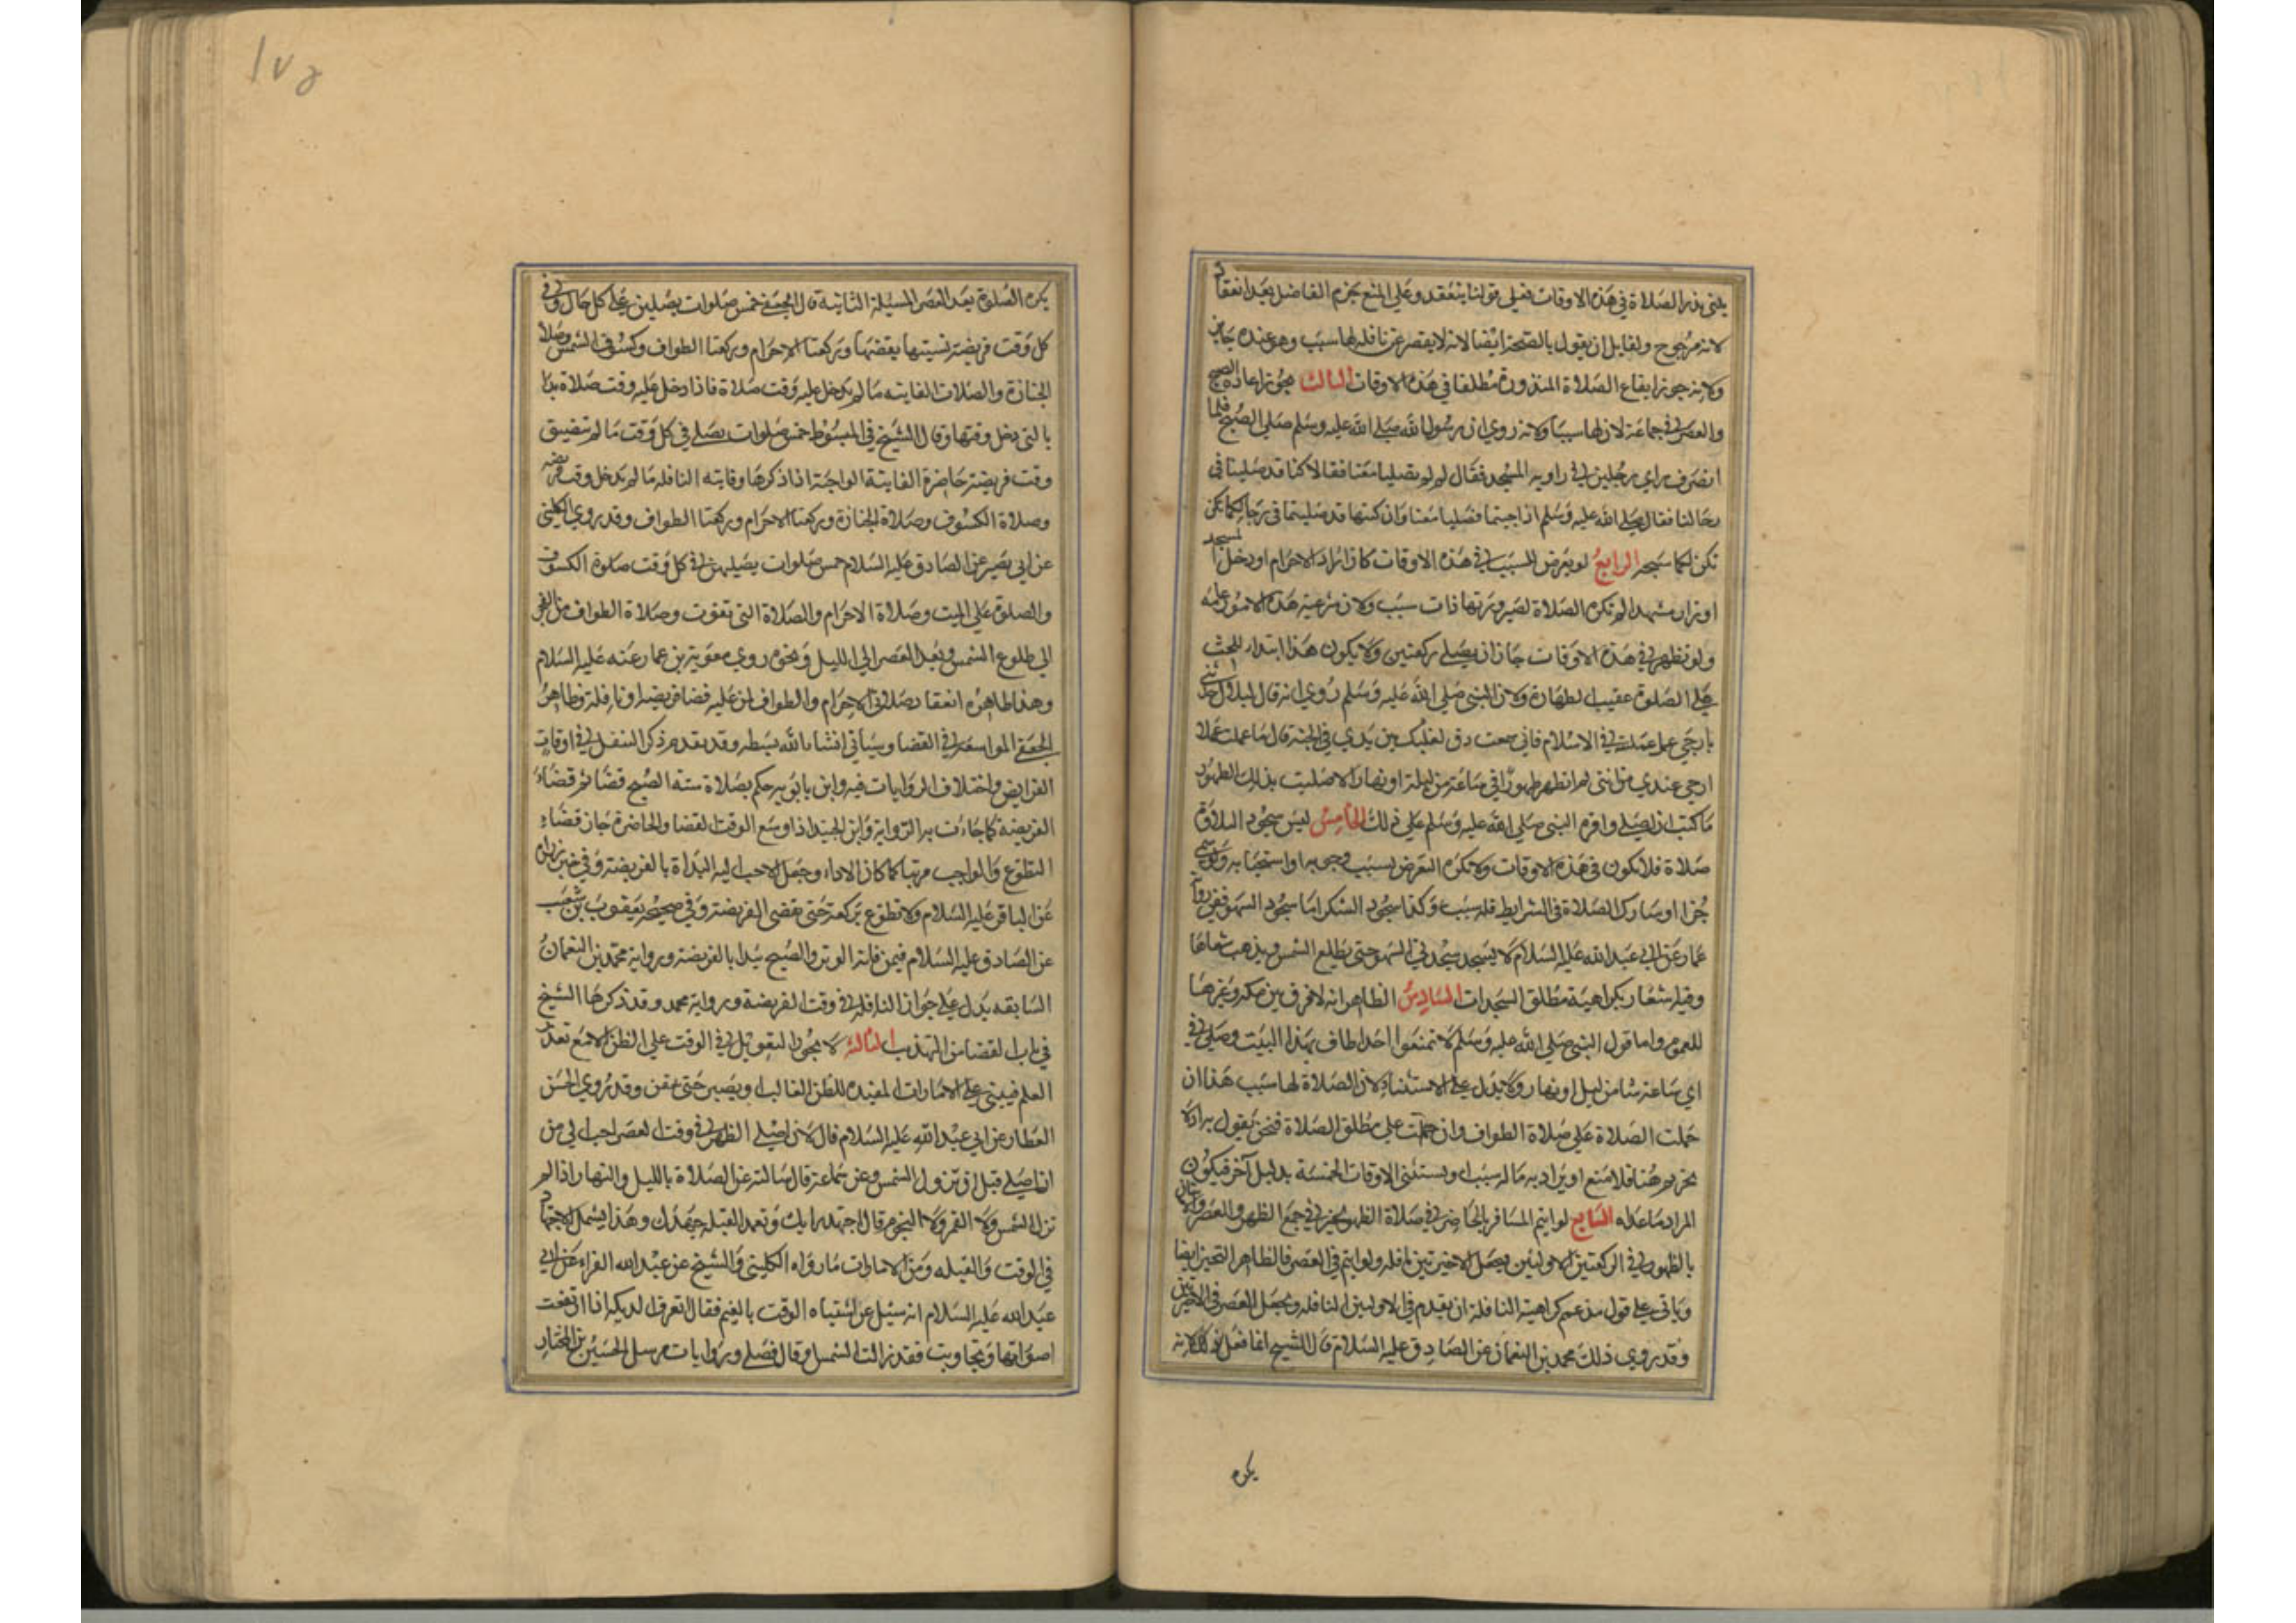 يلتي بذر الصلاة في هذه الاوقات فعلى قولنا ينعقد وعلى المنع جزم الفاضل بعدم انعقاد
لانه مرجوح ولقايل ان يقول بالصحة ايضا لانه لا يقصر عن نافلة لها سبب وهو عنده جايز
ولانه جوز ايقاع الصلاة المنذورة مطلقا في هذه الاوقات الثالث يجوز اعادة الصبح
والعصر في جماعة لان لها سببا ولانه روي ان رسول الله صلى الله عليه وسلم صلى الصبح فلما
انصرف راي رجلين في زاوية المسجد فقال لم لم تصليا معنا فقالا كنا قد صلينا في
رحالنا فقال صلى الله عليه وسلم اذا جيتما فصليا معنا وان كنتما قد صليتما في رحالكما تكن
تكن لكما سبحة الرابع لو تعرض للسبب في هذه الاوقات كان اراد الاحرام او دخل المسجد
او زار مشهدا لم تكره الصلاة لصيرورتها ذات سبب ولان شرعية هذه الامور عامة
ولو تطهر في هذه الاوقات جاز ان يصلي ركعتين ولا يكون هذا ابتداء للحث
على الصلوة عقيب الطهارة ولان النبي صلى الله عليه وسلم روي انه قال لبلال حدثني
بارجى عمل عملته في الاسلام فاني سمعت دق نعليك بين يدي في الجنة قال ما عملت عملا
ارجى عندي من انني لم اتطهر طهورا في ساعة من ليل او نهار الا صليت بذلك الطهور
ما كتب لي ان اصلي واقره النبي صلى الله عليه وسلم على ذلك الخامس ليس سجود التلاوة
صلاة فلا تكون في هذه الاوقات ولا تكره التعرض لسبب وجوبه او استحبابه ولو سمي
جزا او شارك الصلاة في الشرايط فله سبب وكذا سجود الشكر اما سجود السهو ففي رواية
عمار عن ابي عبد الله عليه السلام لا يسجد سجدتي السهو حتى تطلع الشمس ويذهب شعاعها
وفيه اشعار بكراهية مطلق السجدات السادس الظاهر انه لا فرق بين مكة وغيرها
للعموم واما قول النبي صلى الله عليه وسلم لا تمنعوا احدا طاف بهذا البيت وصلى في
اي ساعة شا من ليل او نهار ولا يدل على الاستثناء لان الصلاة لها سبب هذا ان
حملت الصلاة على صلاة الطواف وان حملت على مطلق الصلاة فنحن نقول به اذ لا
تحريم هنا فلا منع او يراد به ما له سبب او يستثنى الاوقات الخمسة بدليل آخر فيكون
المراد ما عداه السابع لو ايتم المسافر بالحاضر في صلاة الظهر تخير في جمع الظهر والعصر
بالظهر في الركعتين الاوليين ويجعل الاخيرتين نافلة ولو ايتم في العصر فالظاهر التخير ايضا
وياتي على قول من عمم كراهية النافلة ان يقدم في الاوليين النافلة ويجعل العصر في الاخيرتين
وقد روي ذلك محمد بن النعمان عن الصادق عليه السلام قال الشيخ انما فعل ذلك لانه
يكره
١٧٥
يكره الصلوة بعد العصر المسيلة الثانية قال الجعفي خمس صلوات يصلين على كل حال وفي
كل وقت فريضة نسيتها يقضيها وركعتا الاحرام وركعتا الطواف وكسوف الشمس وصلاة
الجنازة والصلات الفايتة ما لم يدخل عليه وقت صلاة فاذا دخل عليه وقت صلاة بدا
بالتي دخل وقتها وقال الشيخ في المبسوط خمس صلوات يصلى في كل وقت ما لم تتضيق
وقت فريضة حاضرة الفايتة الواجبة اذا ذكرها وفايته النافلة ما لم يدخل وقت فريضة
وصلاة الكسوف وصلاة الجنازة وركعتا الاحرام وركعتا الطواف وقد روي الكليني
عن ابي بصير عن الصادق عليه السلام خمس صلوات يصليهن في كل وقت صلوة الكسوف
والصلوة على الميت وصلاة الاحرام والصلاة التي تفوت وصلاة الطواف من الفجر
الى طلوع الشمس وبعد العصر الى الليل ونحوه روي معوية بن عمار عنه عليه السلام
وهذا ظاهره انعقاد صلاتي الاحرام والطواف لمن عليه قضا فريضة او نافلة وظاهر
الجعفي المواسعة في القضا وسياتي انشاء الله بسطه وقد تقدم ذكر التنفل في اوقات
الفرايض واختلاف الروايات فيه وابن بابويه حكم بصلاة سنة الصبح قضا ثم قضاء
الفريضة كما جاءت به الرواية وابن الجنيد اذا وسع الوقت القضا والحاضرة جاز قضاء
التطوع والواجب مرتبا كما كان الاداء وجعل الاحب اليه البداة بالفريضة وفي خبر زرارة
عن الباقر عليه السلام ولا تطوع بركعة حتى تقضى الفريضة وفي صحيحة يعقوب بن شعيب
عن الصادق عليه السلام فيمن فاته الوتر والصبح يبدا بالفريضة ورواية محمد بن النعمان
السابقة يدل على جواز النافلة في وقت الفريضة ورواية محمد وقد ذكرها الشيخ
في باب القضا من التهذيب الثالثة لا يجوز التعويل في الوقت على الظن الا مع تعذر
العلم فيبني على الامارات المفيدة للظن الغالب او يصبر حتى يتيقن وقد روي الحسن
العطار عن ابي عبد الله عليه السلام قال لان اصلي الظهر في وقت العصر احب الي من
ان اصلي قبل ان تزول الشمس وعن سماعة قال سالته عن الصلاة بالليل والنهار اذا لم
تر الشمس ولا القمر ولا النجوم قال اجتهد رايك وتعمد القبلة جهدك وهذا يشمل الاجتهاد
في الوقت والقبلة ومن الامارات ما رواه الكليني والشيخ عن عبد الله الفراء عن ابي
عبد الله عليه السلام انه سئل عن اشتباه الوقت بالغيم فقال اتعرف الديكة اذا ارتفعت
اصواتها وتجاوبت فقد زالت الشمس وقال فصلي وروايات مرسل الحسين بن المختار